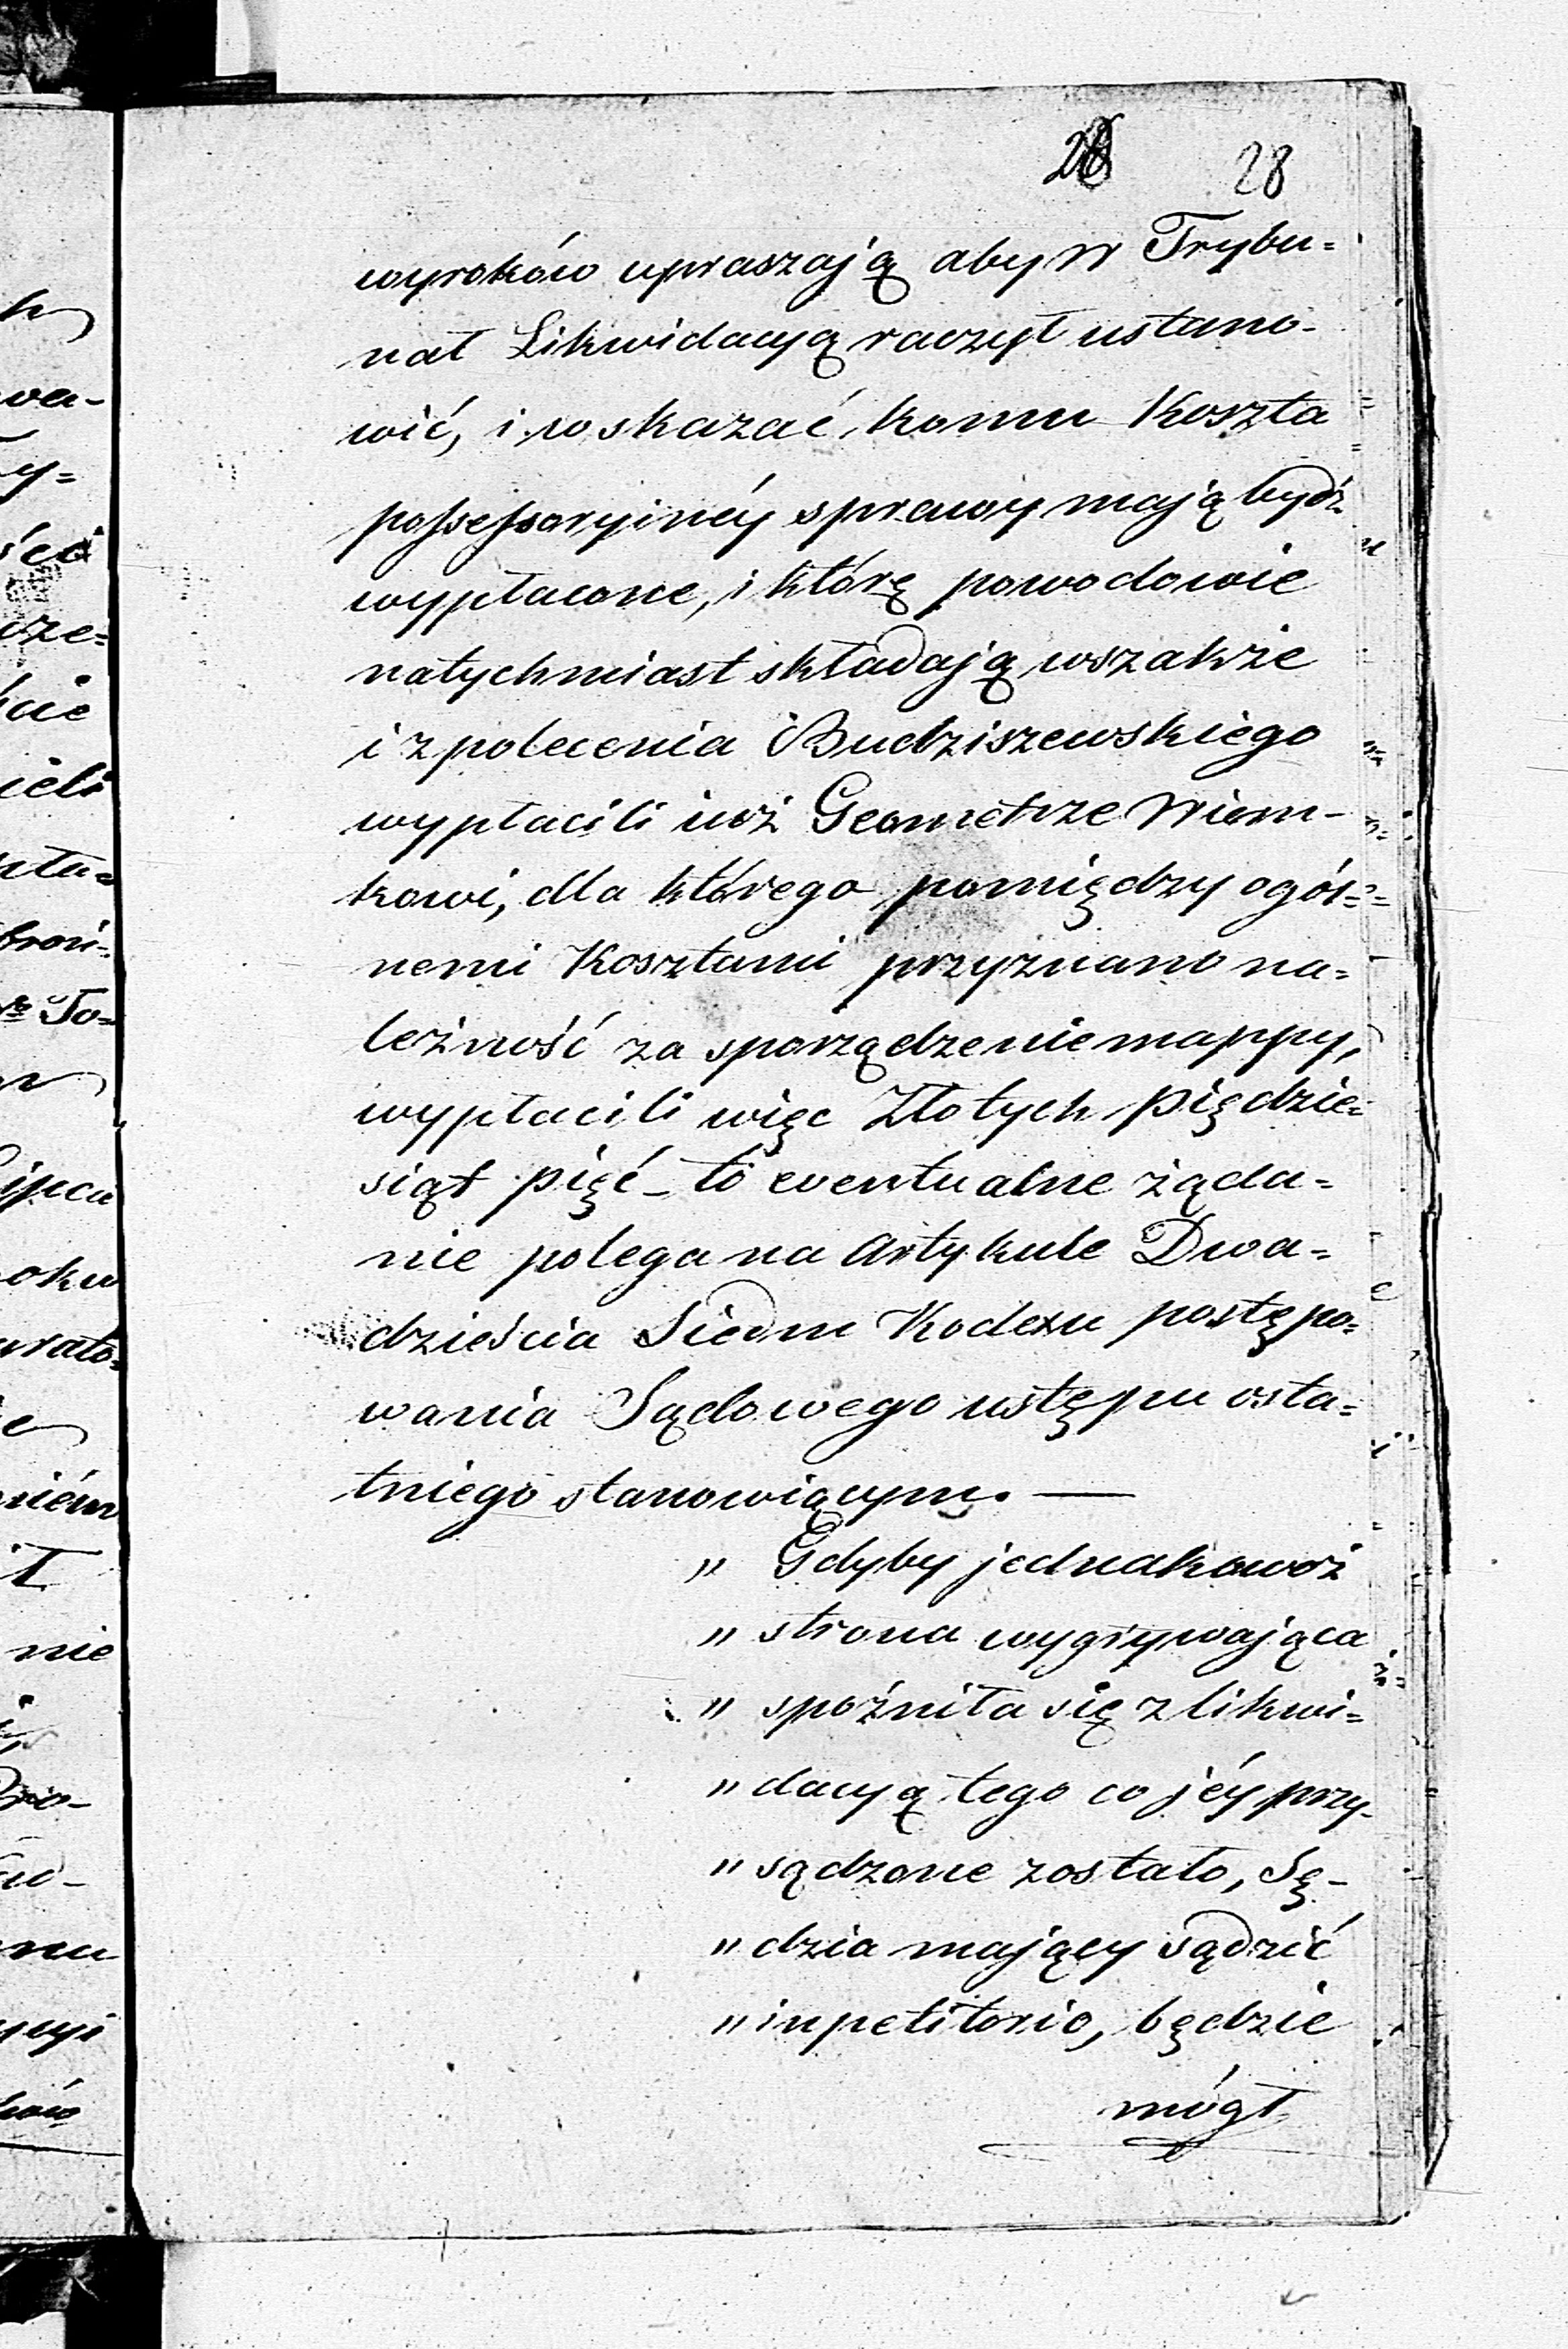 28 28
wyroków upraszają aby W Trybu=
nał Likwidacyą raczył ustano-
wić, i wskazać, komu Koszta
possessoryinéy sprawy mają bydź
wypłacone, i którę powodowie
natychmiast składają wszakże
i z polecenia Budziszewskiego
wypłacili iuż Geometrze Wiom-
kowi, dla którego pomiędzy ogól=
nemi Kosztami przyznano na=
leżność za sporządzenie mappy,
wypłacili więc Złotych piędzie=
siąt pięć – to eventualne żąda=
nie polega na Artykule Dwa=
dzieścia Siedm Kodexu postępo=
wania Sądowego ustępu osta=
tniego stanowiącym. —
„ Gdyby jednakowoż
„ strona wygrywająca
„ spoźniła się z likwi=
„ dacyą tego co jéy przy-
„ sądzone zostało, Sę-
„ dzia mający sądzić
„ in petitorio, będzie
mógł